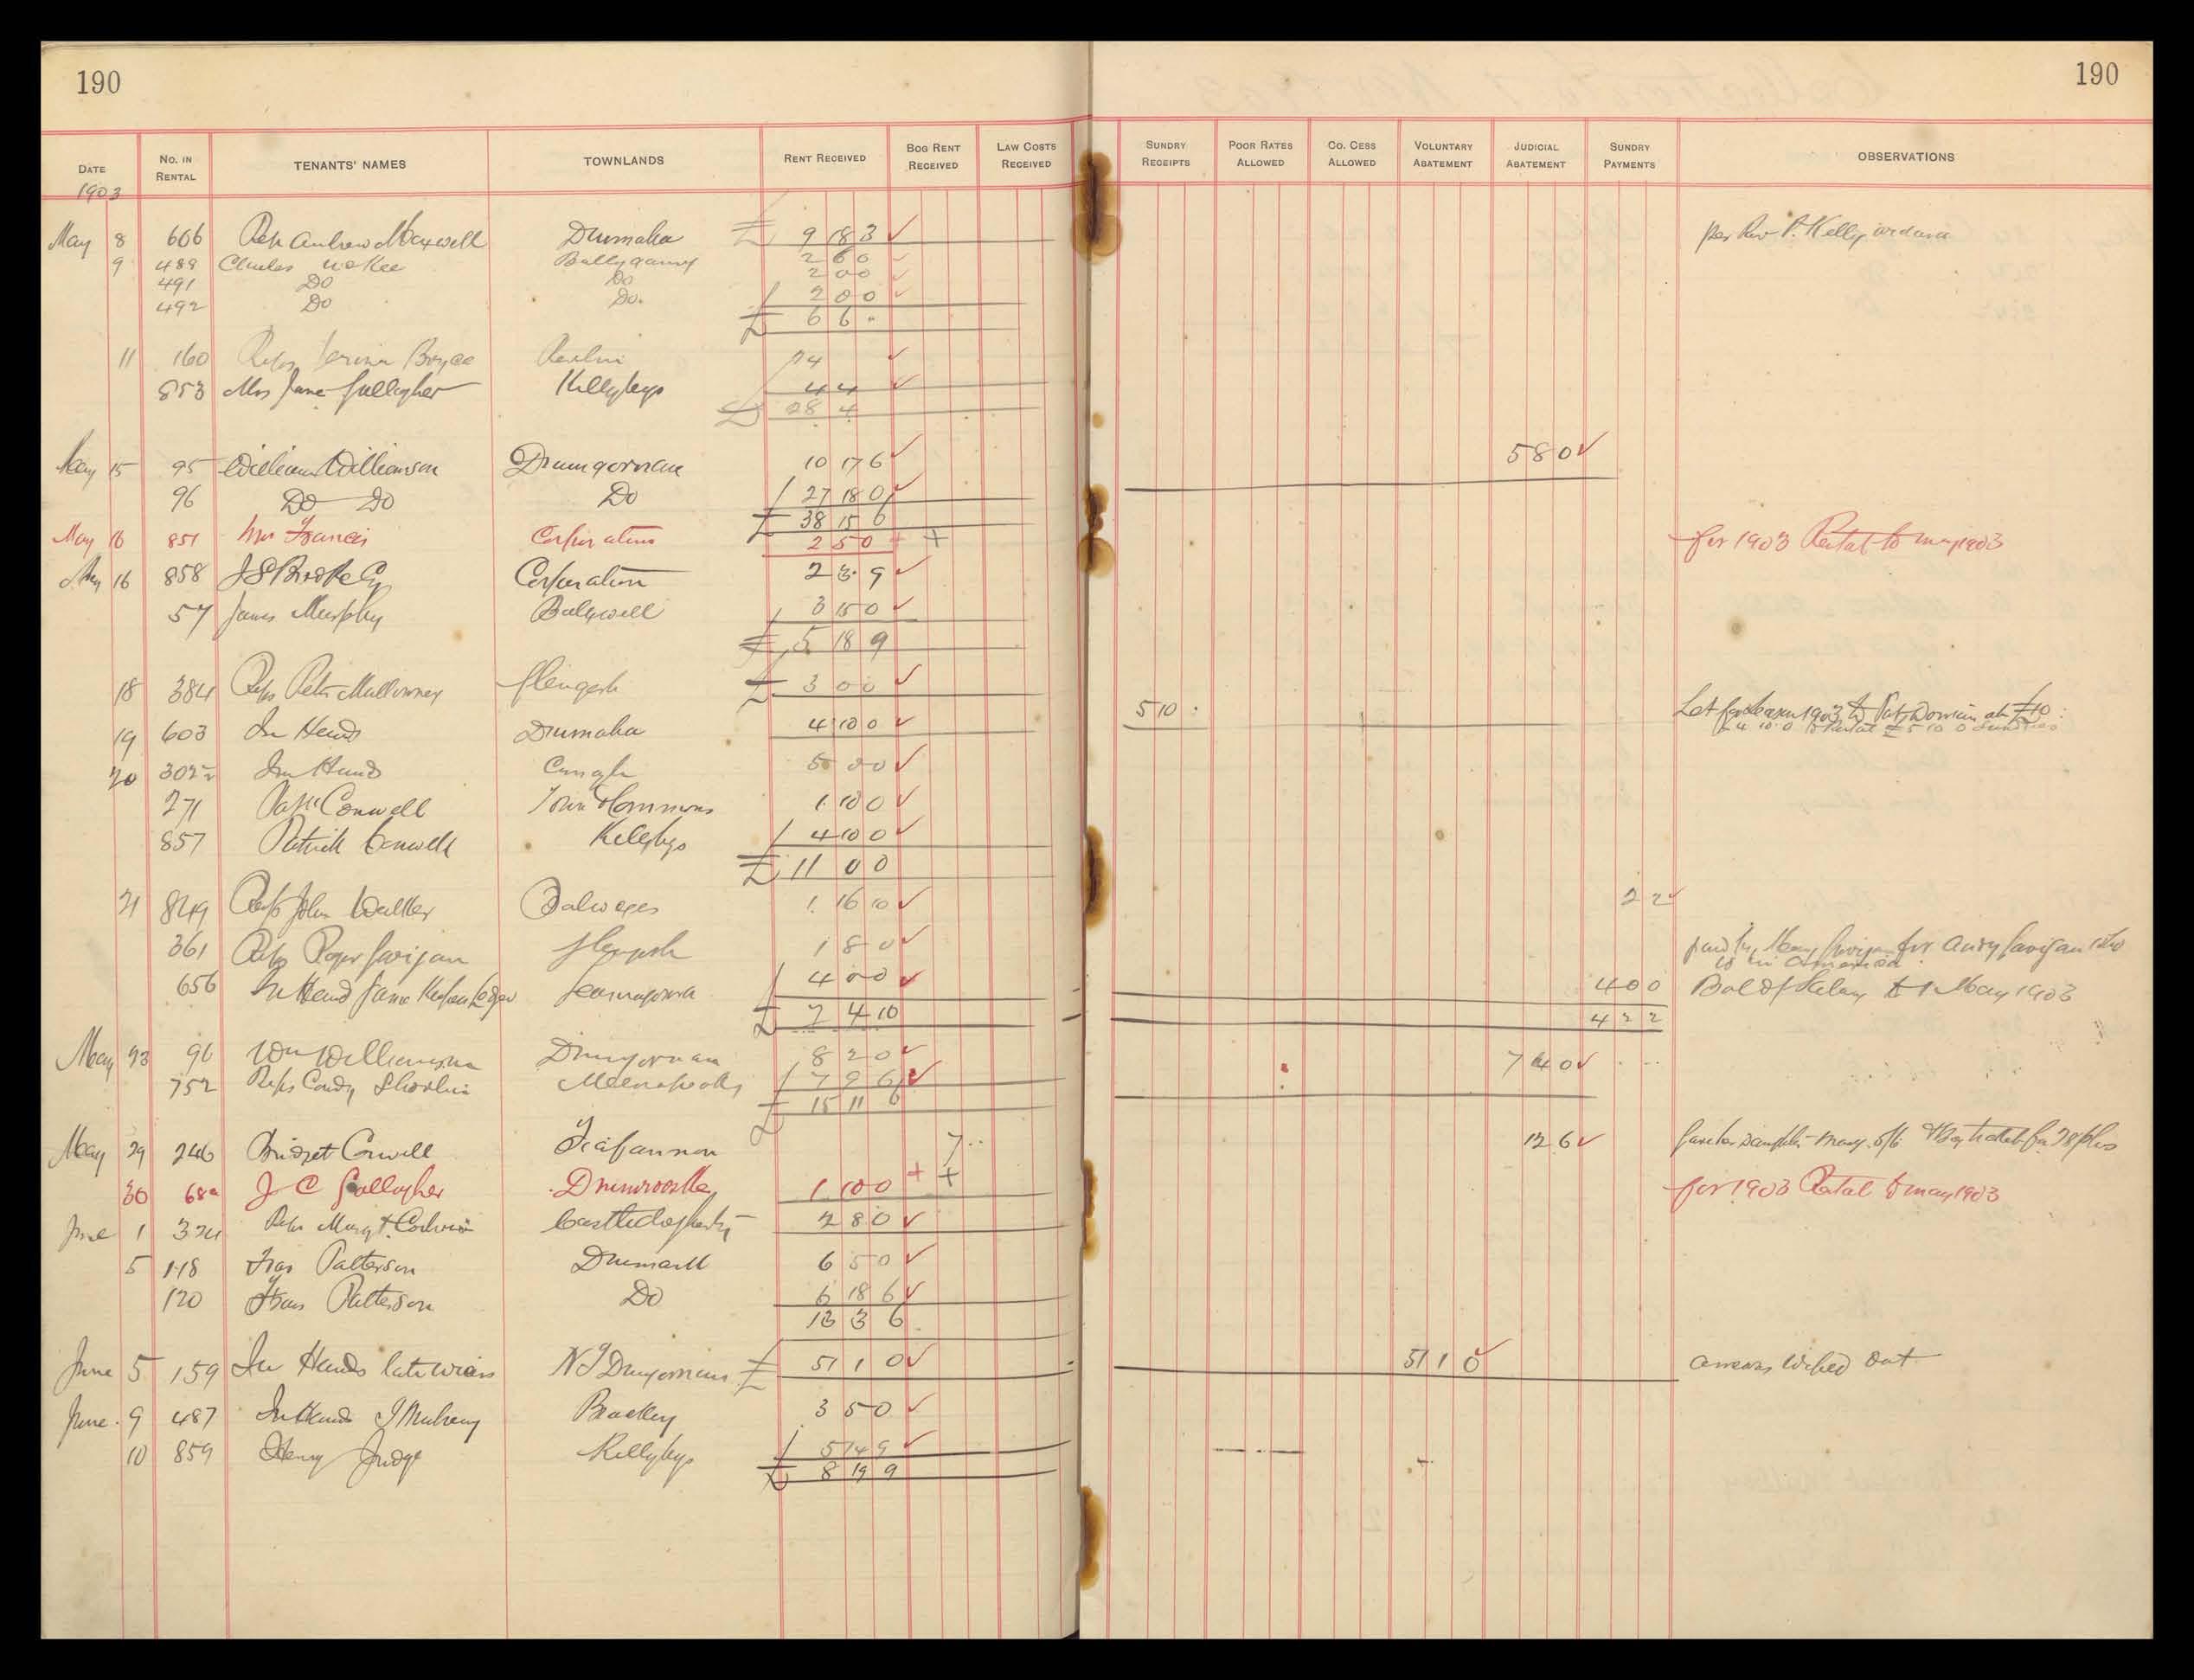 190 190
DATE NO. IN RENTAL TENANTS' NAMES TOWNLANDS RENT RECEIVED BOG RENT RECEIVED LAW COSTS RECEIVED SUNDRY RECEIPTS POOR RATES ALLOWED CO. CESS ALLOWED VOLUNTARY ABATEMENT JUDICIAL ABATEMENT SUNDRY PAYMENTS OBSERVATIONS
1903
May 8 606 Reps Andrew Maxwell Drumaha £ 9 18 3 ✓ per Rev P. Kelly Ardara
9 489 Charles McKee 2 6 0 ✓
491 Do Do 2 0 0 ✓
492 Do Do. 2 0 0 ✓
£ 6 6 .
11 160 Reps Boyce 24 ✓
853 Mrs Jane Gallagher Killybegs 4 4 ✓
£ 28 4
May 15 95 William Williamson Drumgorman 10 17 6 ✓ 5 8 0 ✓
96 Do Do Do 27 18 0 ✓
£ 38 15 6
May 16 851 Mrs Francis Corporation 2 5 0 + + for 1903 Rental to May 1903
May 16 858 J S Brooke Corporation 2 3 9 ✓
57 James Murphy Ballywell 3 15 0 ✓
£ 5 18 9
18 384 Reps Peter Mullowney Glengesh £ 3 0 0 ✓
19 603 In Hands Drumaha 4 10 0 ✓ 5 10 . Let for Season 1903 to Pat at £10 :
£4 10 0 to Rental £5 10 0 Sundries
20 302½ In Hands 5 0 0 ✓
271 Pat Conwell Town Commons 1 10 0 ✓
857 Patrick Conwell Killybegs 4 10 0 ✓
£ 11 0 0
21 849 Reps John Walker Balwoges 1 16 10 ✓ 2 2 ✓
361 Reps Roger Gavigan Glengesh 1 8 0 ✓ paid by Mary Gavigan for Andy Gavigan who
is in America
656 In Hand James 4 0 0 ✓ 4 0 0 Bal of Salary to 1 May 1903
£ 7 4 10 4 2 2
May 23 96 Wm Williamson Drumgorman 8 2 0 ✓ 7 4 0 ✓
752 Reps Condy 7 9 6 ✓
£ 15 11 6
May 29 246 Bridget Conwell 7 . . 12 6 ✓
30 68a J C Gallagher 1 10 0 + + for 1903 Rental to May 1903
June 1 324 Reps Margt. 2 8 0 ✓
5 118 Fras Patterson Drumark 6 5 0 ✓
120 Fras Patterson Do 6 18 6 ✓
13 3 6
June 5 159 In Hands late £ 51 1 0 ✓ 51 1 0 ✓ arrears wiped out
June 9 487 In Hands Brackey 3 5 0 ✓
10 859 Henry Judge Killybegs 5 14 9 ✓
£ 8 19 9